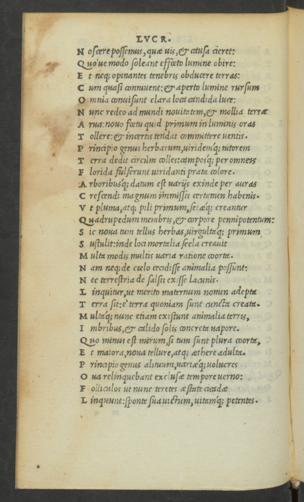 LVCR.
N oscere possemus, quæ uis, & causa cieret:
Q uo'ue modo soleant effœto lumine obire:
E t neq; opinantes tenebris obducere terras:
C um quasi conniuent: & aperto lumine rursum
O mnia conuisunt clara loca candida luce:
N unc redeo ad mundi nouitatem, & mollia terræ
A rua: nouo fœtu quid primum in luminis oras
T ollere: & incertis tendat committere uentis.
P rincipio genus herbarum, uiridemq; nitorem
T erra dedit circum colleis: camposq; per omneis
F lorida fulserunt uiridanti prata colore.
A rboribusq; datum est uarijs exinde per auras
C rescendi magnum immissis certamen habenis.
V t pluma, atq; pili primum, setæq; creantur
Q uadrupedum membris, & corpore pennipotentum:
S ic noua tum tellus herbas, uirgultaq; primum
S ustulit: inde loci mortalia secla creauit
M ulta modis multis uaria ratione coorta.
N am neq; de cælo cecidisse animalia possunt:
N ec terrestria de salsis exisse lacunis.
L inquitur, ut merito maternum nomen adepta
T erra sit: è terra quoniam sunt cuncta creata.
M ultaq; nunc etiam existunt animalia terris,
I mbribus, & calido solis concreta uapore.
Q uo minus est mirum, si tum sunt plura coorta,
E t maiora, noua tellure, atq; æthere adulta.
P rincipio genus alituum, uariæq; uolucres
O ua relinquebant exclusæ tempore uerno:
F olliculos ut nunc teretes æstate cicadæ
L inquunt: sponte sua uictum, uitamq; petentes.